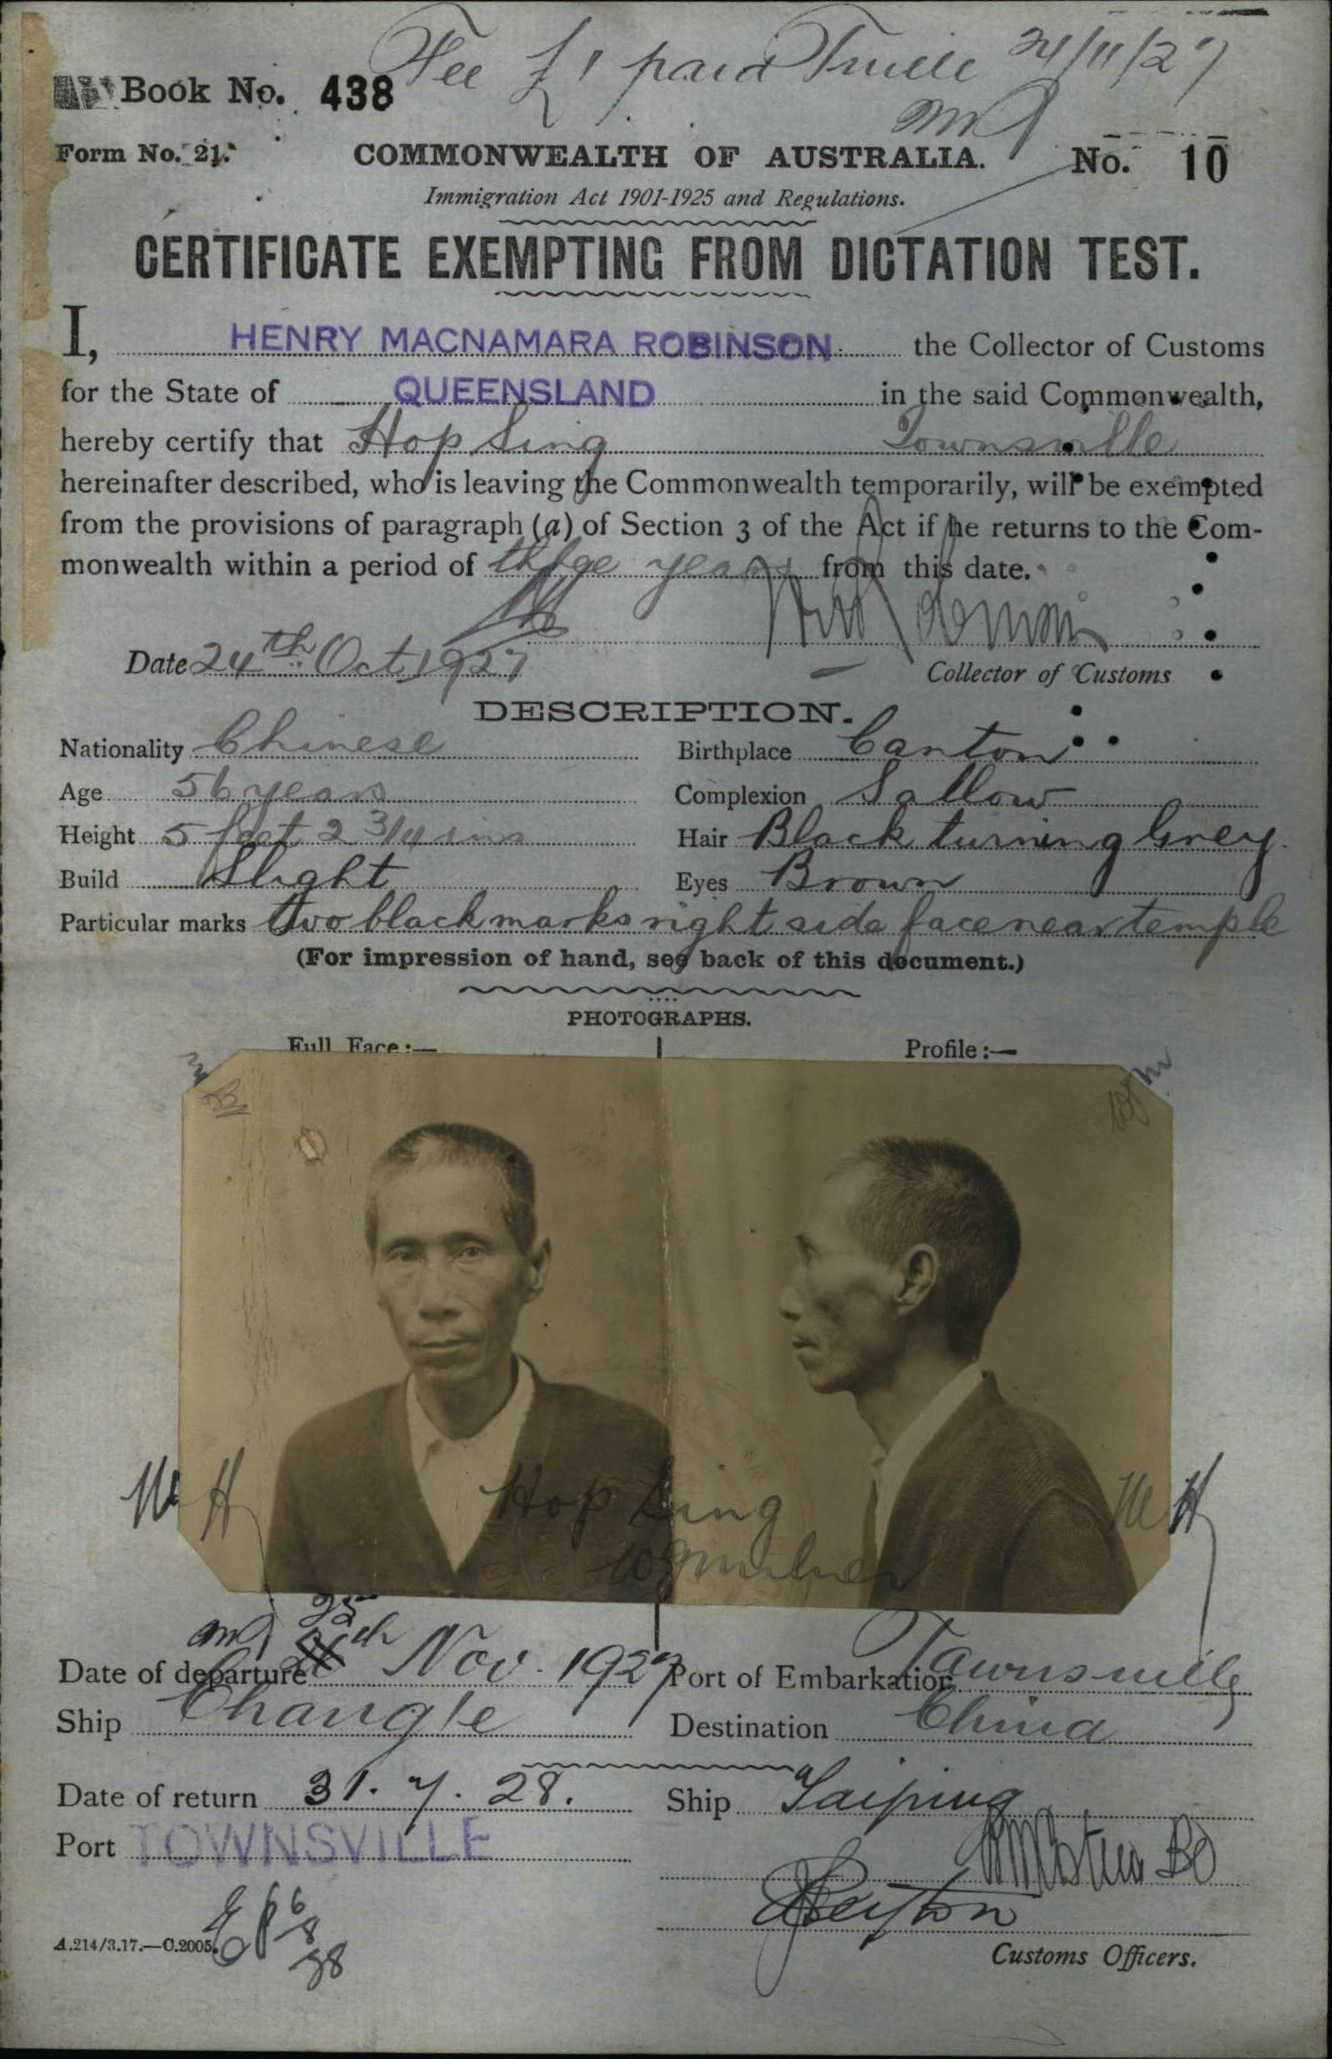 Fee £1 paid Tville 24/11/27
Book No. 438
Form No. 21.
COMMONWEALTH OF AUSTRALIA.
No. 10
Immigration Act 1901-1925 and Regulations.
CERTIFICATE EXEMPTING FROM DICTATION TEST.
I, HENRY MACNAMARA ROBINSON the Collector of Customs
for the State of QUEENSLAND in the said Commonwealth,
hereby certify that Hop Sing Townsville
hereinafter described, who is leaving the Commonwealth temporarily, will be exempted
from the provisions of paragraph (a) of Section 3 of the Act if he returns to the Com-
monwealth within a period of three years from this date.
Date 24th Oct 1927
Collector of Customs
DESCRIPTION.
Nationality Chinese Birthplace Canton
Age 56 years Complexion Sallow
Height 5 feet 2 3/4 ins Hair Black turning Grey.
Build Slight Eyes Brown
Particular marks two black marks right side face near temple
(For impression of hand, see back of this document.)
PHOTOGRAPHS.
Full Face:— Profile:—
W H W H
Hop Sing
25th
Date of departure Nov. 1927 Port of Embarkation Townsville
Ship Changte Destination China
Date of return 31. 7. 28. Ship Taiping
Port TOWNSVILLE
A.214/3.17.—C.2005.
Customs Officers.